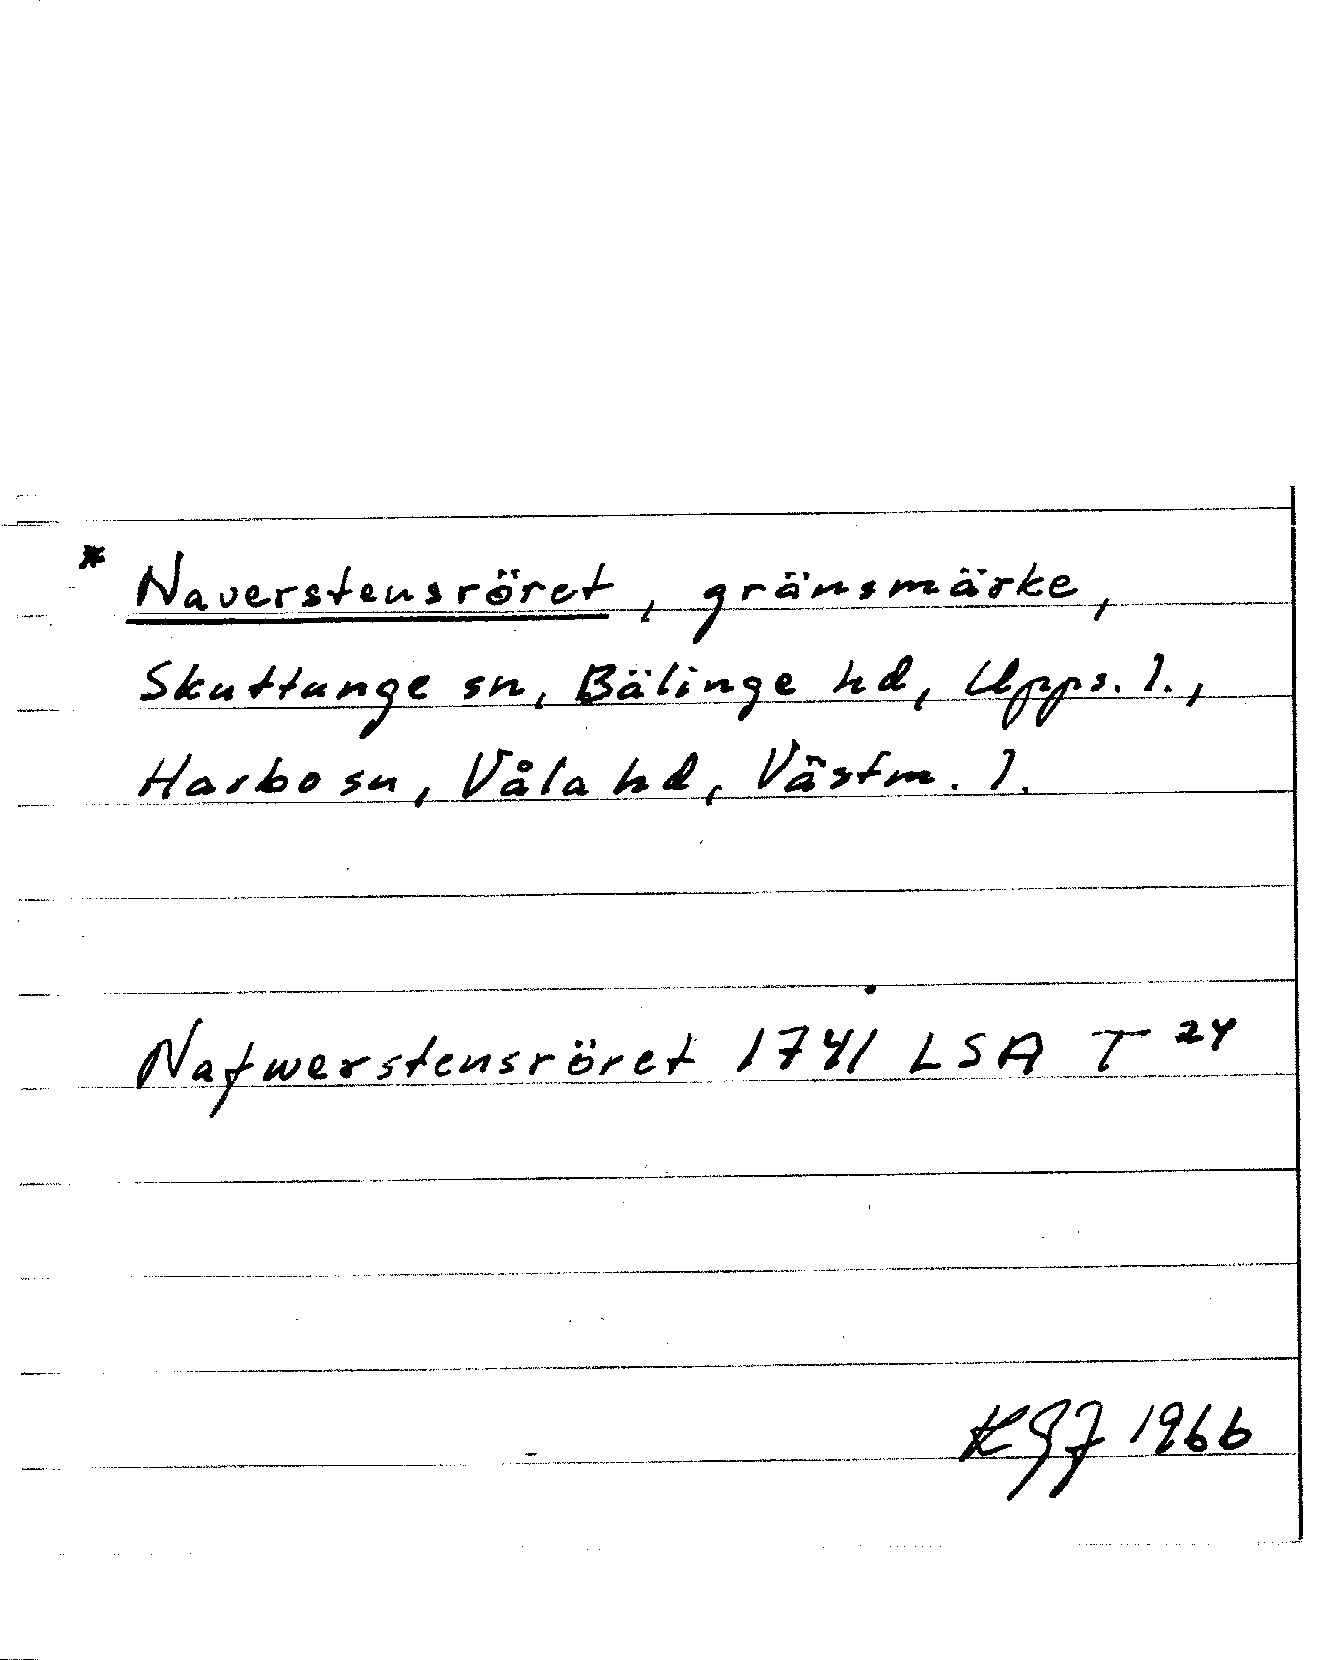 * Naverstensröret, gränsmärke,
Skuttunge sn, Bälinge hd, Upps. l.,
Harbo sn, Våla hd, Västm. l.
Nafwerstensröret 1741 LSA T 24
KGJ 1966